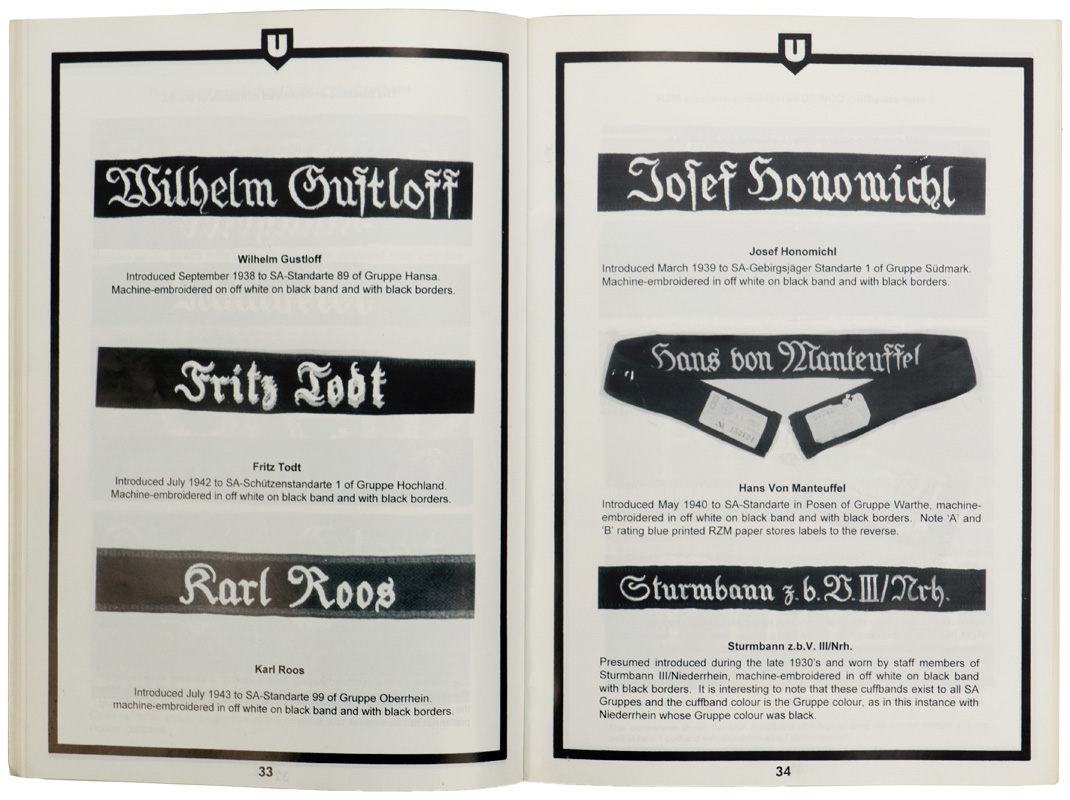 U
Wilhelm Gustloff
Wilhelm Gustloff
Introduced September 1938 to SA-Standarte 89 of Gruppe Hansa.
Machine-embroidered on off white on black band and with black borders.
Fritz Todt
Fritz Todt
Introduced July 1942 to SA-Schützenstandarte 1 of Gruppe Hochland.
Machine-embroidered in off white on black band and with black borders.
Karl Roos
Karl Roos
Introduced July 1943 to SA-Standarte 99 of Gruppe Oberrhein.
machine-embroidered on off white on black band and with black borders.
33
U
Josef Honomichl
Josef Honomichl
Introduced March 1939 to SA-Gebirgsjäger Standarte 1 of Gruppe Südmark.
Machine-embroidered in off white on black band and with black borders.
Hans von Manteuffel
Hans Von Manteuffel
Introduced May 1940 to SA-Standarte in Posen of Gruppe Warthe, machine-
embroidered in off white on black band and with black borders. Note 'A' and
'B' rating blue printed RZM paper stores labels to the reverse.
Sturmbann z.b.V.III/Nrh.
Sturmbann z.b.V. III/Nrh.
Presumed introduced during the late 1930's and worn by staff members of
Sturmbann III/Niederrhein, machine-embroidered in off white on black band
with black borders. It is interesting to note that these cuffbands exist to all SA
Gruppes and the cuffband colour is the Gruppe colour, as in this instance with
Niederrhein whose Gruppe colour was black.
34